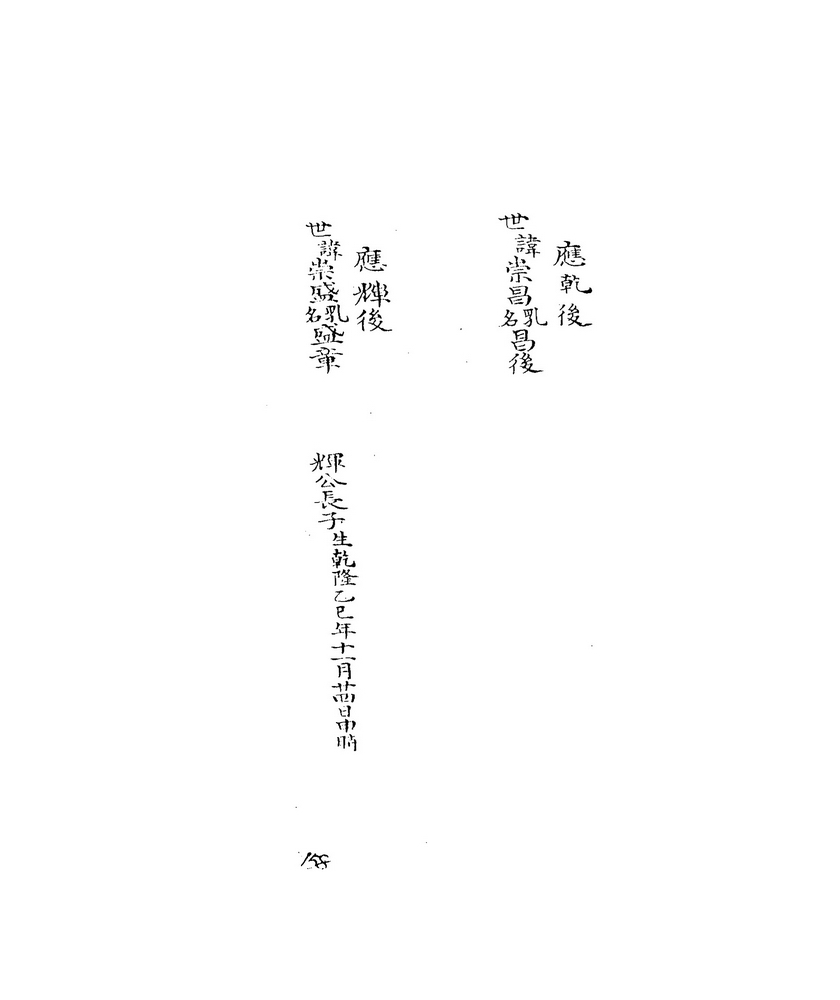 應乾後
世諱崇昌乳名昌後
應輝後
世諱崇盛乳名盛章
輝公長子生乾隆乙巳年十一月廿四日申時
158